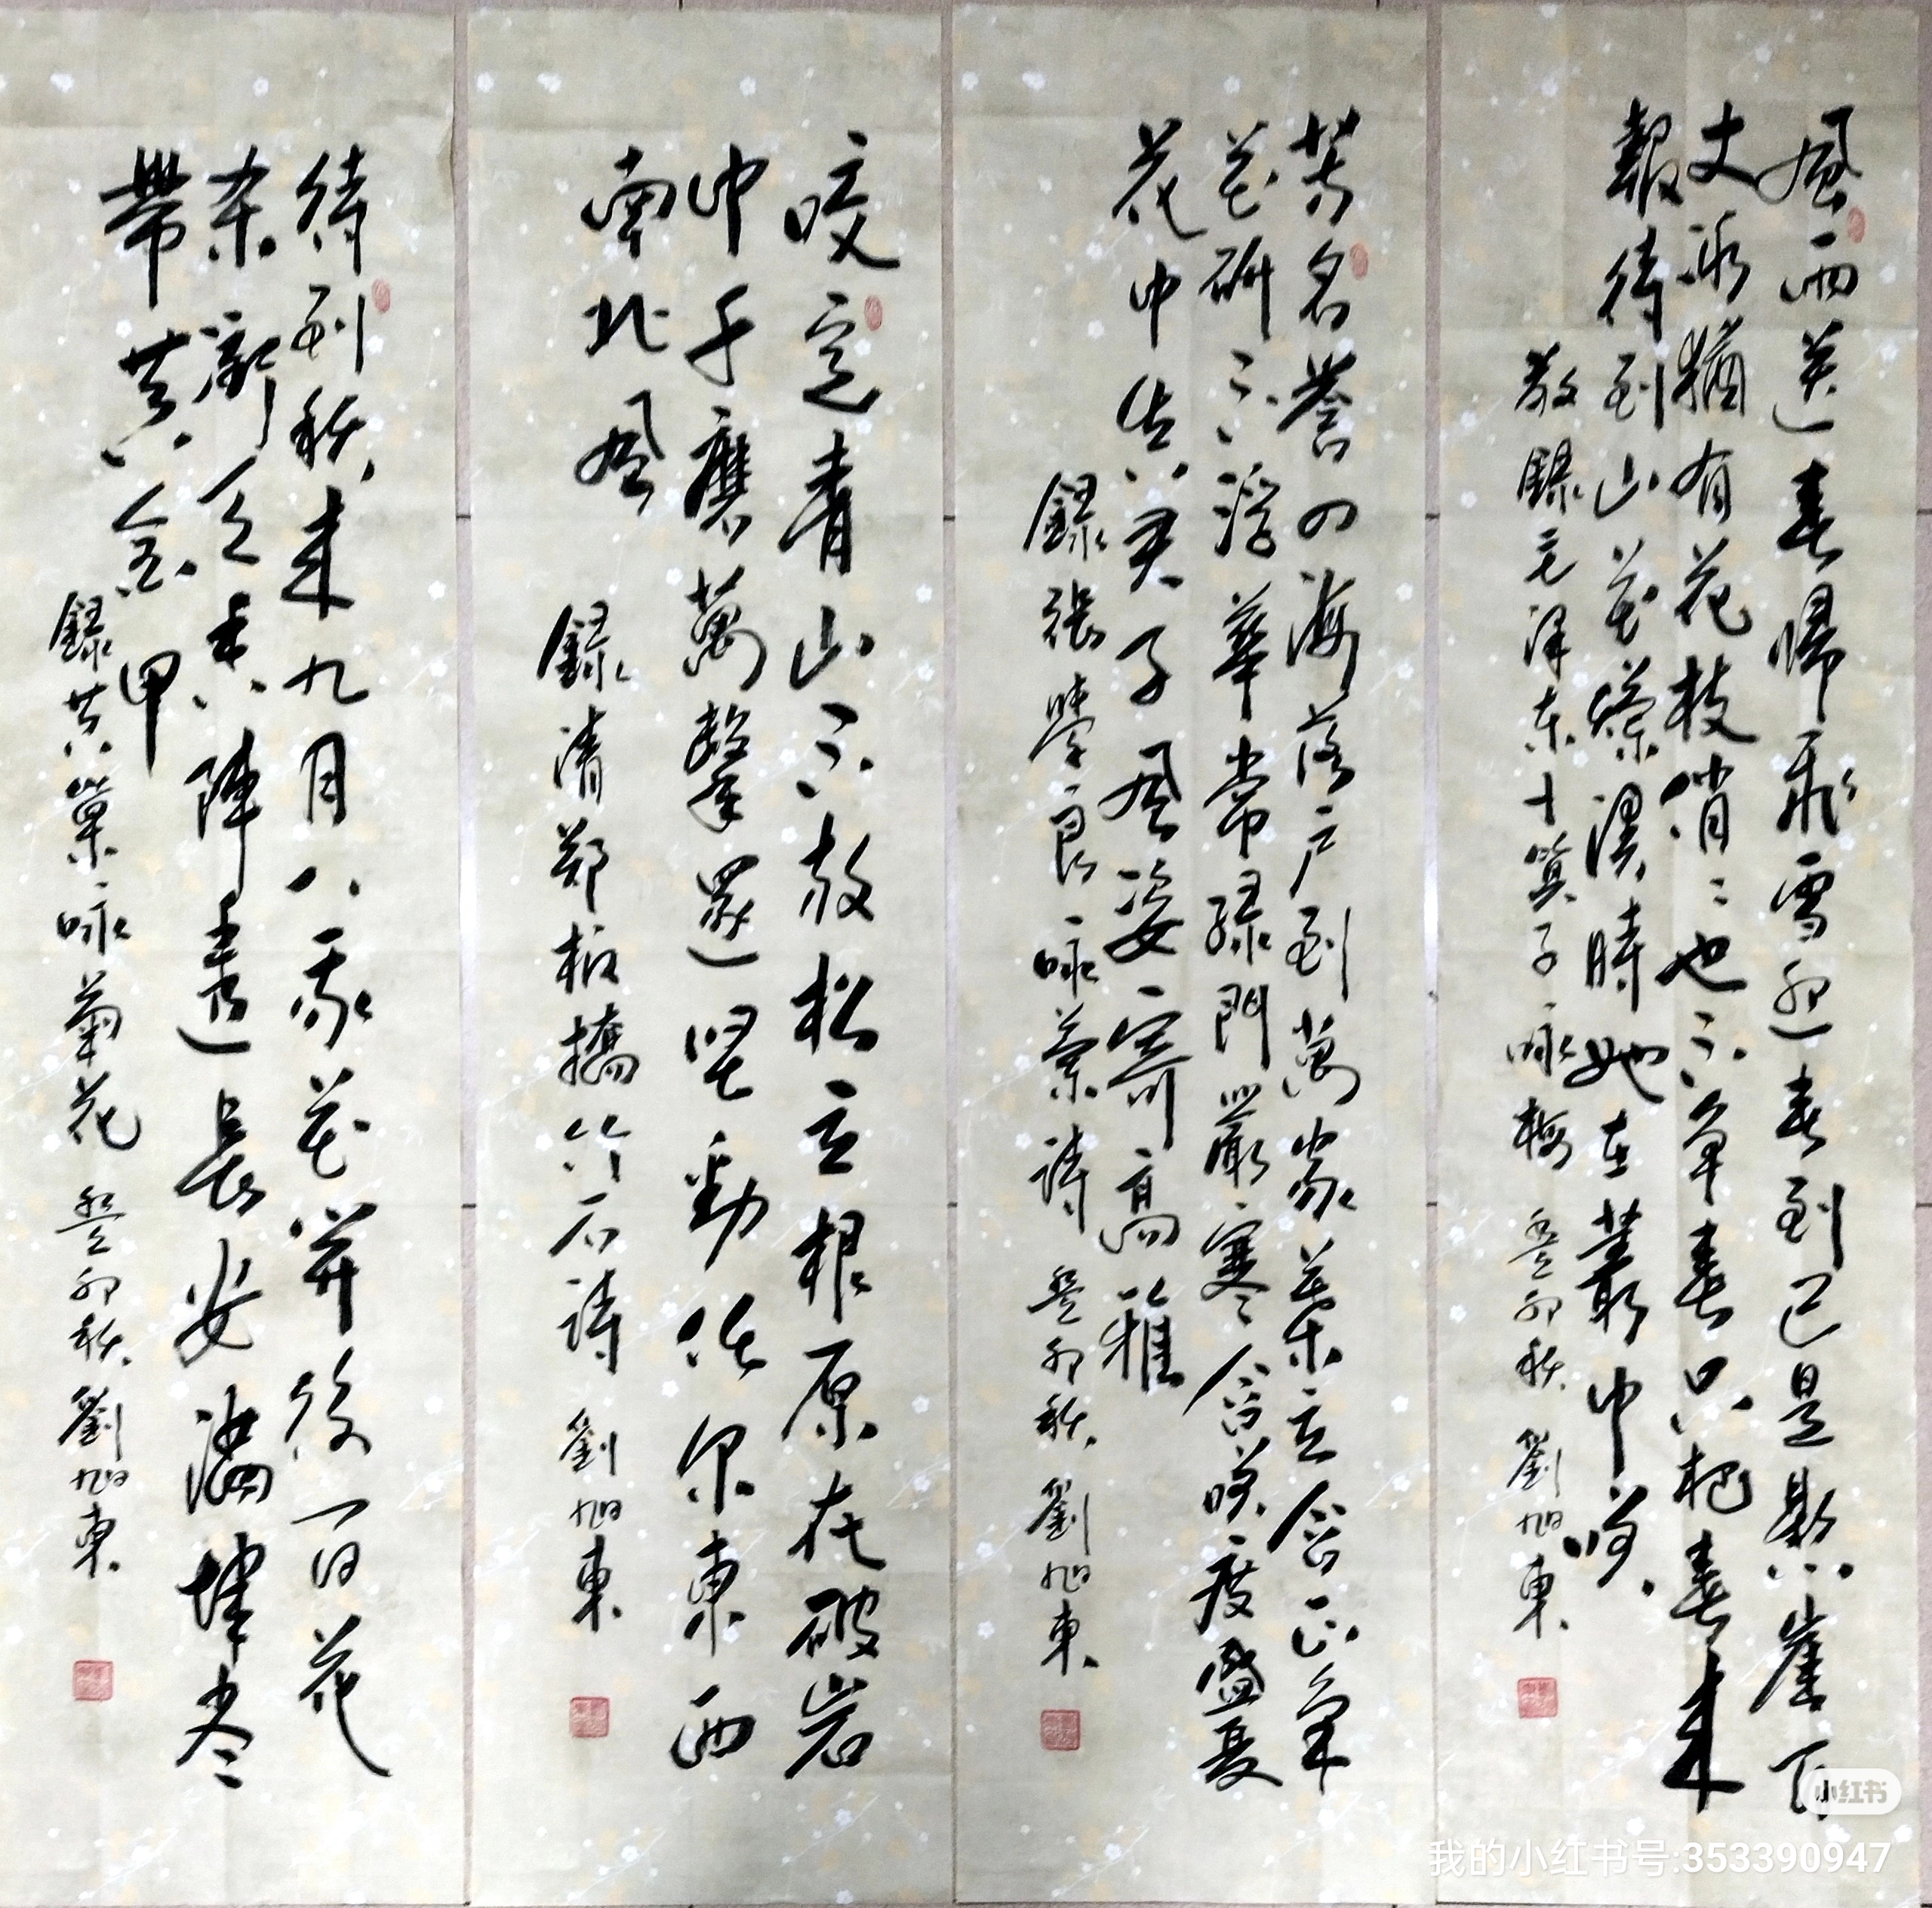 風雨送春歸飛雪迎春到已是懸崖百
丈冰猶有花枝俏〻也不争春只把春来
報待到山花爛漫時她在叢中笑
敬錄毛澤东卜算子咏梅 癸卯秋 劉旭東
芳名譽四海落户到萬家葉立含正氣
花妍不浮華常绿門嚴寒含笑度盛夏
花中真君子風姿寄高雅
錄張學良咏蘭詩 癸卯秋 劉旭東
咬定青山不放松立根原在破岩
中千磨萬擊還坚勁任尔東西
南北風
錄清郑板橋竹石詩 劉旭東
待到秋来九月八我花开後百花
杀衝天香陣透長安滿城尽
帶黄金甲
錄黄巢咏菊花 癸卯秋 劉旭東
小红书
我的小红书号:353390947